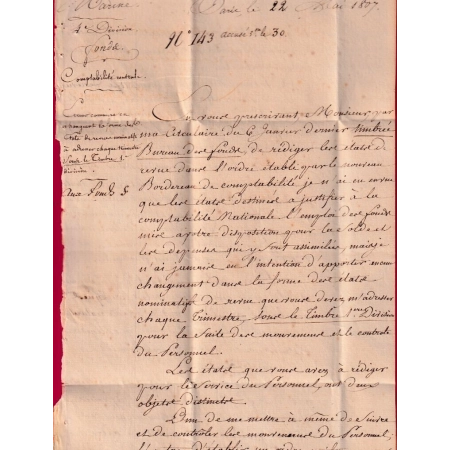 Marine
Paris le 22 Mai 1807
4e Division
Fonds
N° 143 accusé Rn le 30.
Comptabilité centrale
En vous prescrivant, Monsieur, par
ma Circulaire du 6 Janvier dernier timbrée
Bureau des fonds, de rédiger les états de
revue dans l'ordre établi par le nouveau
Bordereau de comptabilité je n'ai eu en vue
que les états destinés à justifier à la
comptabilité Nationale l'emploi des fonds
mis à votre disposition pour la Solde et
les dépenses qui y sont assimilées, mais je
n'ai jamais eu l'intention d'apporter aucun
changement dans la forme des états
nominatifs de revue que vous devez m'adresser
chaque Trimestre, sous le Timbre 1ere Division
pour la Suite des mouvemens et le controle
du Personnel.
Les états que vous avez à rédiger
pour le Service du Personnel, ont deux
objets distincts
L'un de me mettre à même de Suivre
et de contrôler les mouvemens du Personnel,
à adresser chaque trimestre
Sous le Timbre 1re
Division
Aux Fonds